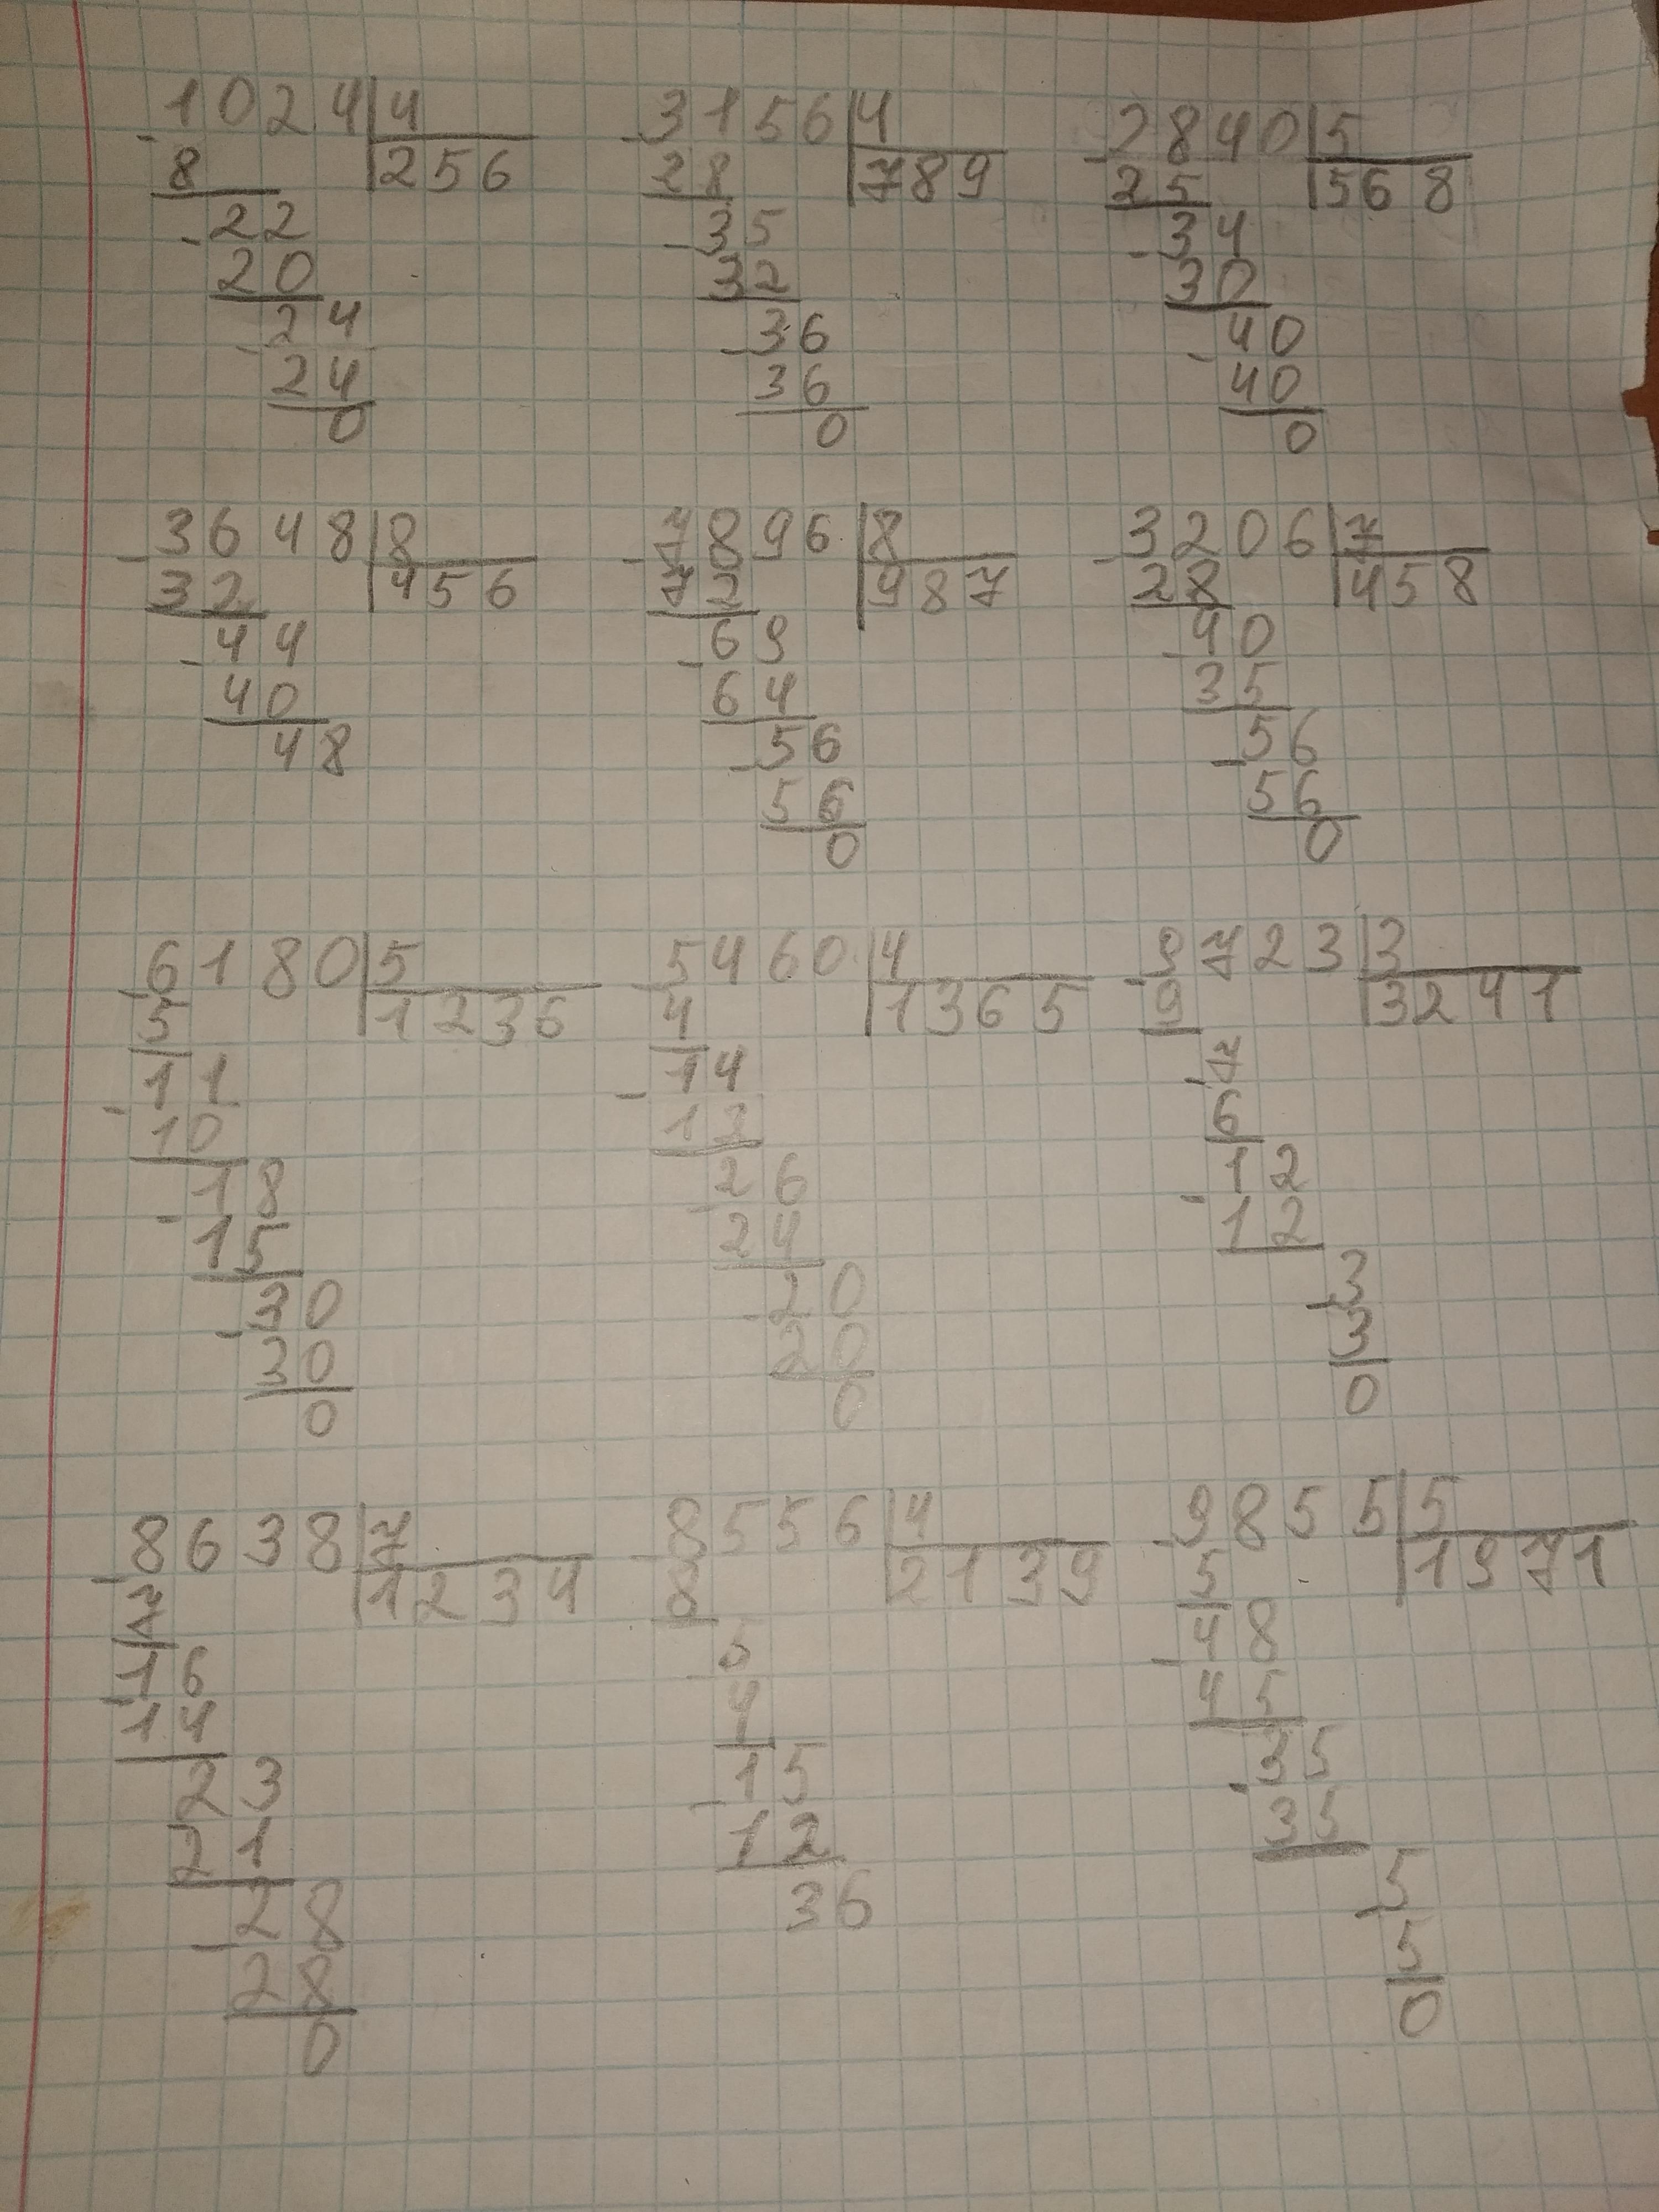 1024|4
-8 |256
-22
20
-24
24
0
-3156|4
28 |789
-35
32
-36
36
0
-2840|5
25 |568
-34
30
-40
40
0
-3648|8
32 |456
-44
40
48
-7896|8
72 |987
-69
64
-56
56
0
-3206|7
28 |458
-40
35
-56
56
0
-6180|5
5 |1236
-11
10
-18
15
-30
30
0
-5460|4
4 |1365
-14
12
-26
24
-20
20
0
-9723|3
9 |3241
-7
6
-12
12
-3
3
0
-8638|7
7 |1234
-16
14
23
21
-28
28
0
-8556|4
8 |2139
-5
4
-15
12
36
-9855|5
5 |1971
-48
45
-35
35
-5
5
0